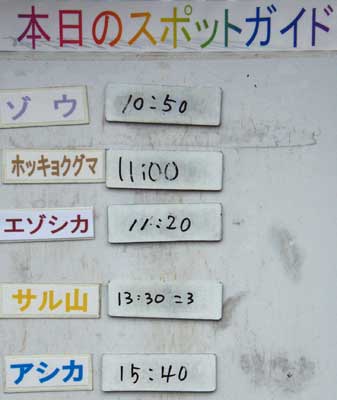 本日のスポットガイド
ゾウ 10:50
ホッキョクグマ 11:00
エゾシカ 11:20
サル山 13:30=3
アシカ 15:40